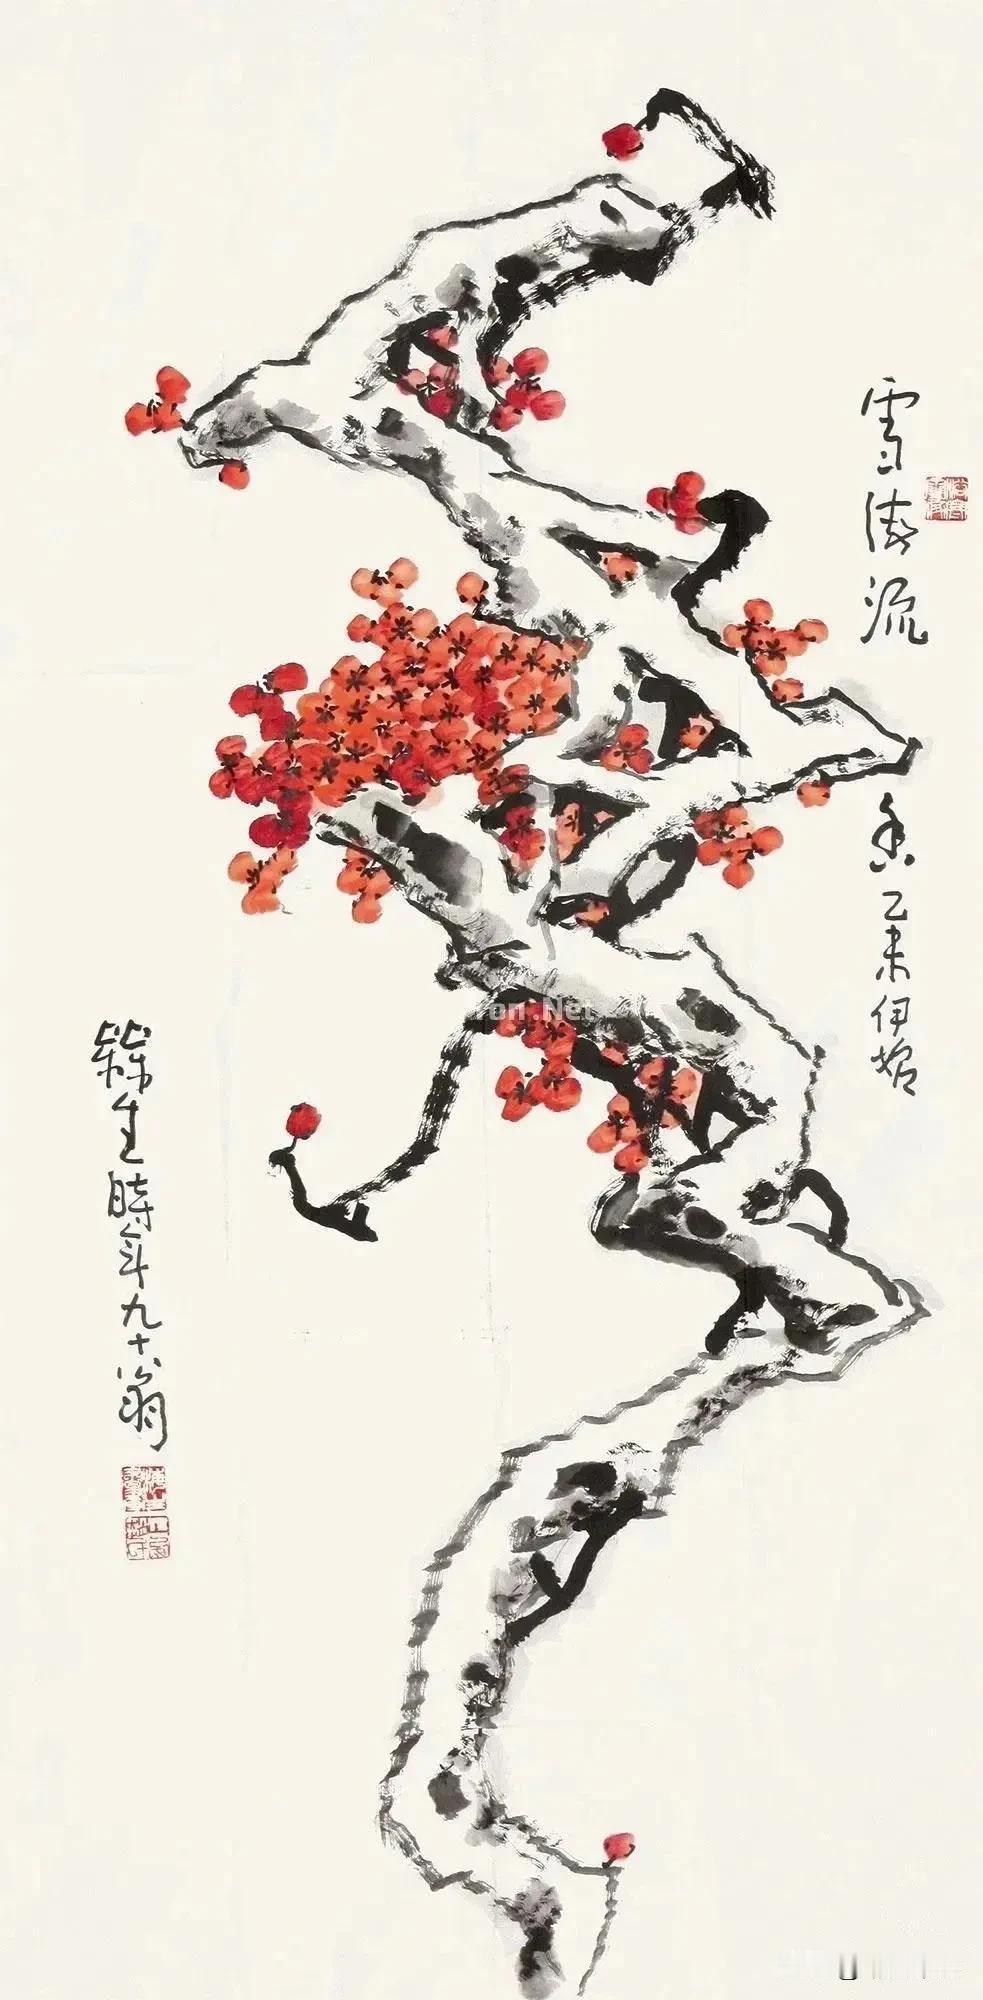 雪海流
香乙未伊始
生時年九十翁
.Net